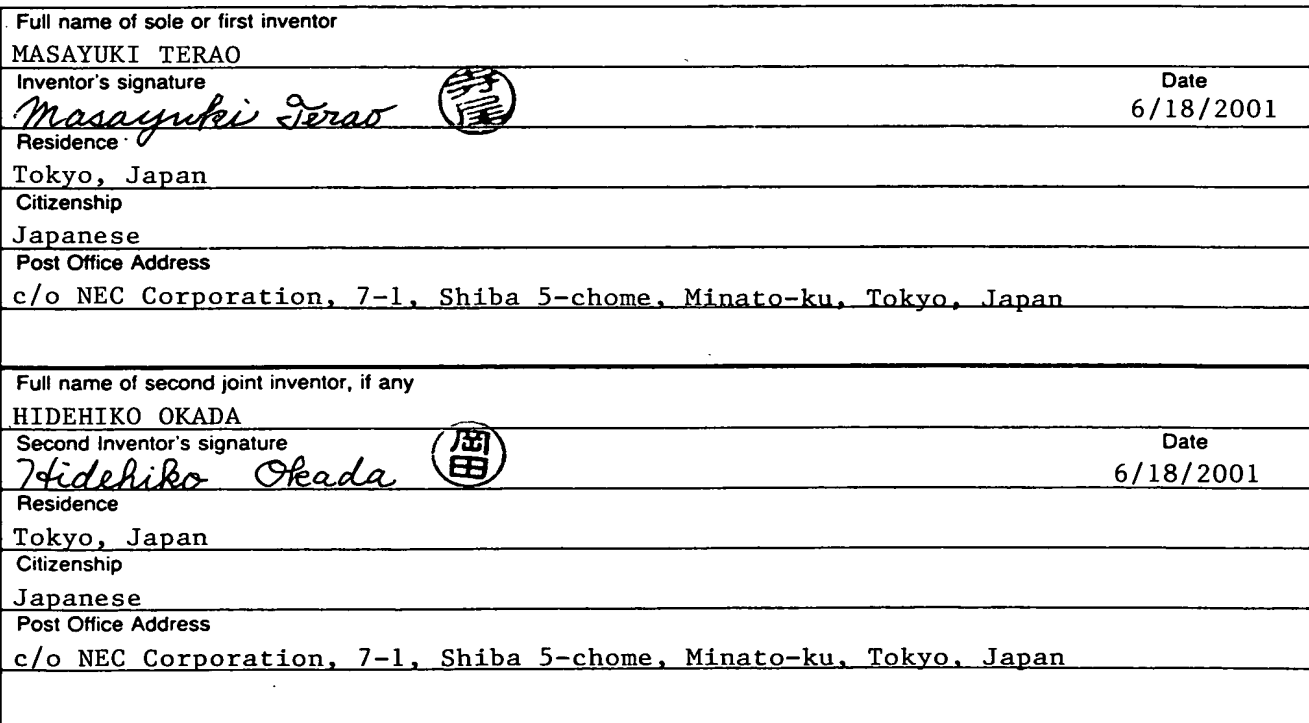 Full name of sole or first inventor
MASAYUKI TERAO
Inventor's signature
Date
Masayuki Terao 寺尾
6/18/2001
Residence
Tokyo, Japan
Citizenship
Japanese
Post Office Address
c/o NEC Corporation, 7-1, Shiba 5-chome, Minato-ku, Tokyo, Japan
Full name of second joint inventor, if any
HIDEHIKO OKADA
Second Inventor's signature
Date
Hidehiko Okada 岡田
6/18/2001
Residence
Tokyo, Japan
Citizenship
Japanese
Post Office Address
c/o NEC Corporation, 7-1, Shiba 5-chome, Minato-ku, Tokyo, Japan